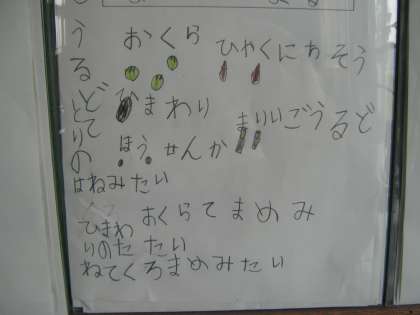 おくら
ひゃくにちそう
ひまわり
まりいごうるど
ほうせんか
うるどてとりの
はねみたい
おくらてまめみ
ひまわ
りのたたい
ねてくろまめみたい